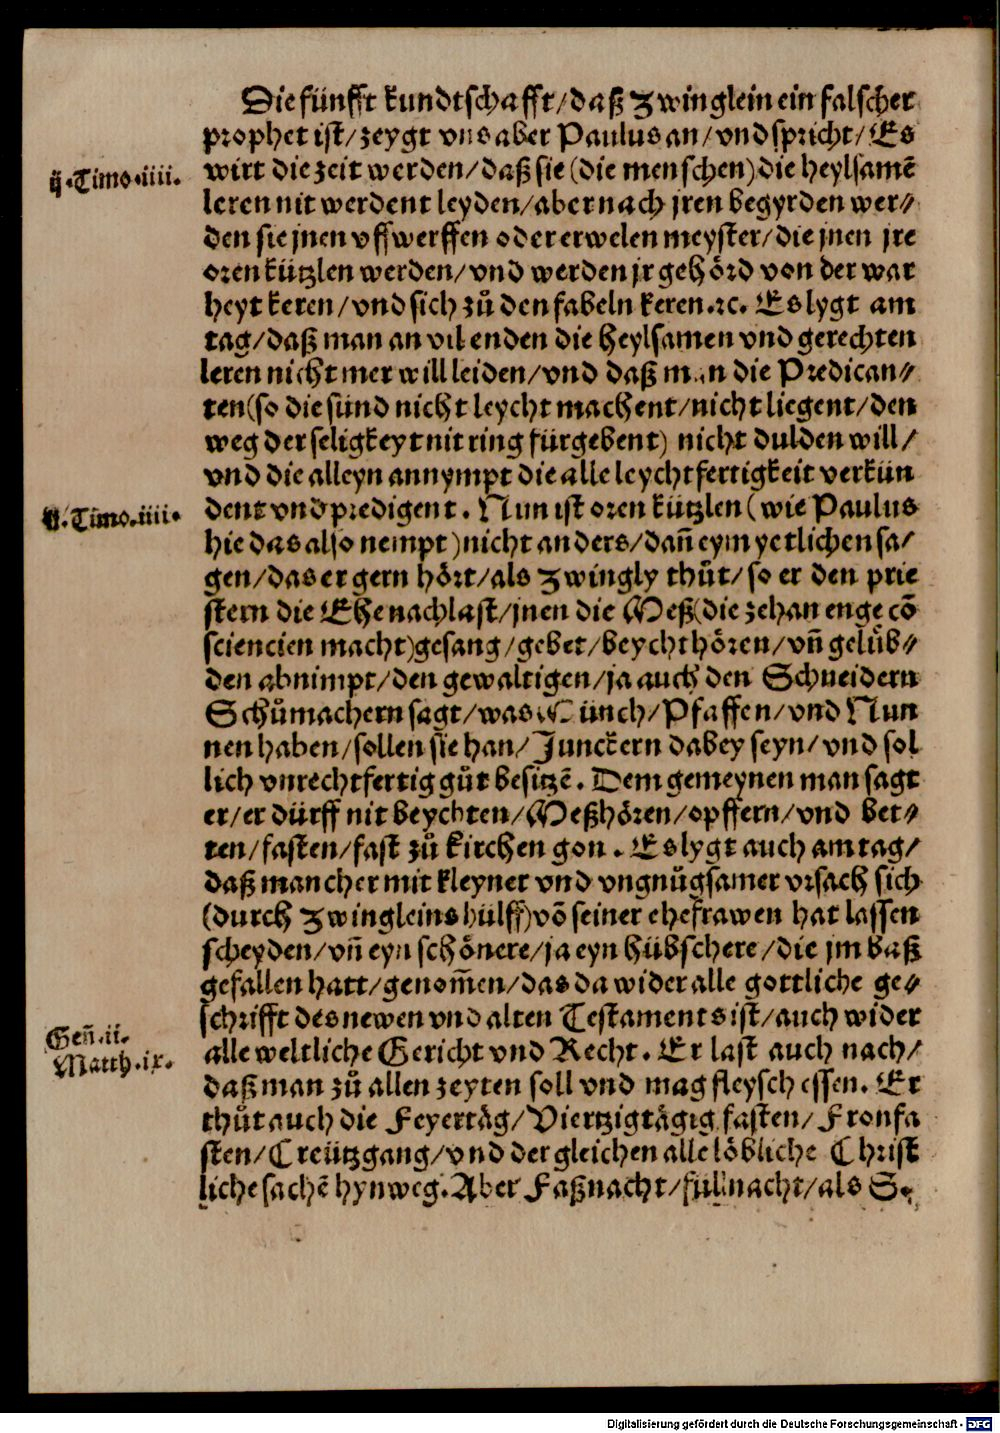 Die fünfft kundtschafft/daß Zwinglein ein falscher
prophet ist/zeygt vns aber Paulus an/vnd spricht/Es
ij.Timo.iiii.
wirt die zeit werden/daß sie (die menschen) die heylsamē
leren nit werdent leyden/aber nach jren begyrden wer⸗
den sie jnen vffwerffen oder erwelen meyster/die jnen jre
oren kützlen werden/vnd werden jr gehörd von der war
heyt keren/vnd sich zů den fabeln keren.ꝛc. Es lygt am
tag/daß man an vil enden die heylsamen vnd gerechten
leren nicht mer will leiden/vnd daß man die Predican⸗
ten(so die sünd nicht leycht machent/nicht liegent/den
weg der seligkeyt nit ring fürgebent) nicht dulden will/
vnd die alleyn annympt die alle leychtfertigkeit verkün
ij.Timo.iiii.
dent vnd predigent. Nun ist oren kützlen (wie Paulus
hie das also nempt) nicht anders/dañ eym yetlichen sa/
gen/das er gern hört/als Zwingly thůt/so er den prie
stern die Ehe nachlast/jnen die Meß(die zehan enge cō
sciencien macht)gesang/gebet/beycht hören/vñ gelüb⸗
den abnimpt/den gewaltigen/ja auch den Schneidern
Schůmachern sagt/was Münch/Pfaffen/vnd Nun
nen haben/sollen sie han/Junckern dabey seyn/vnd sol
lich vnrechtfertig gůt besitzē. Dem gemeynen man sagt
er/er dürff nit beychten/Meßhören/opffern/vnd bet⸗
ten/fasten/fast zů kirchen gon. Es lygt auch am tag/
daß mancher mit kleyner vnd vngnůgsamer vrsach sich
(durch Zwingleins hülff)vō seiner ehefrawen hat lassen
scheyden/vñ eyn schönere/ja eyn hübschere/die jm baß
gefallen hatt/genom̄en/das da wider alle gottliche ge⸗
schrifft des newen vnd alten Testaments ist/auch wider
Geñ.ii.
Matth.ix.
alle weltliche Gericht vnd Recht. Er last auch nach/
daß man zů allen zeyten soll vnd mag fleysch essen. Er
thůt auch die Feyertäg/Viertzigtägig fasten/Fronfa
sten/Creützgang/vnd der gleichen alle löbliche Christ
liche sachē hynweg. Aber Faßnacht/füllnacht/als S.
Digitalisierung gefördert durch die Deutsche Forschungsgemeinschaft - DFG